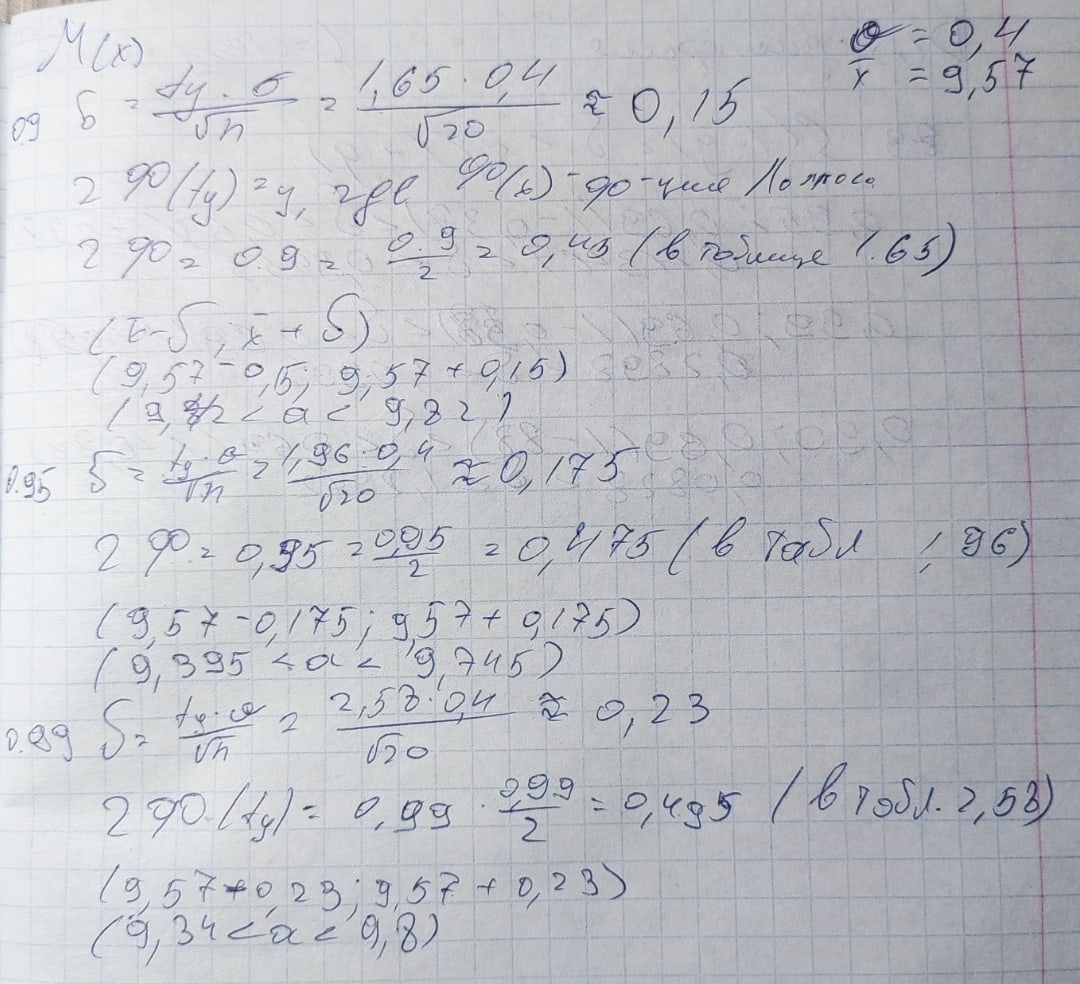 M(x)
σ = 0,4
x̄ = 9,57
0.9 δ = tγ · σ / √n = 1,65 · 0,4 / √20 ≈ 0,15
2 Ф0(tγ) = γ, где Ф0(x) - ф-ция Лапласа
2 Ф0 = 0.9 = 0.9 / 2 = 0,45 (в таблице 1.65)
(x̄ - δ; x̄ + δ)
(9,57 - 0,15; 9,57 + 0,15)
< a <
0.95 δ = tγ · σ / √n = 1,96 · 0,4 / √20 ≈ 0,175
2 Ф0 = 0,95 = 0,95 / 2 = 0,475 (в табл 1,96)
(9,57 - 0,175; 9,57 + 0,175)
(9,395 < a < 9,745)
0.99 δ = tγ · σ / √n = 2,58 · 0,4 / √20 ≈ 0,23
2 Ф0 (tγ) = 0,99 · 0,99 / 2 = 0,495 (в табл. 2,58)
(9,57 - 0,23; 9,57 + 0,23)
(9,34 < a < 9,8)